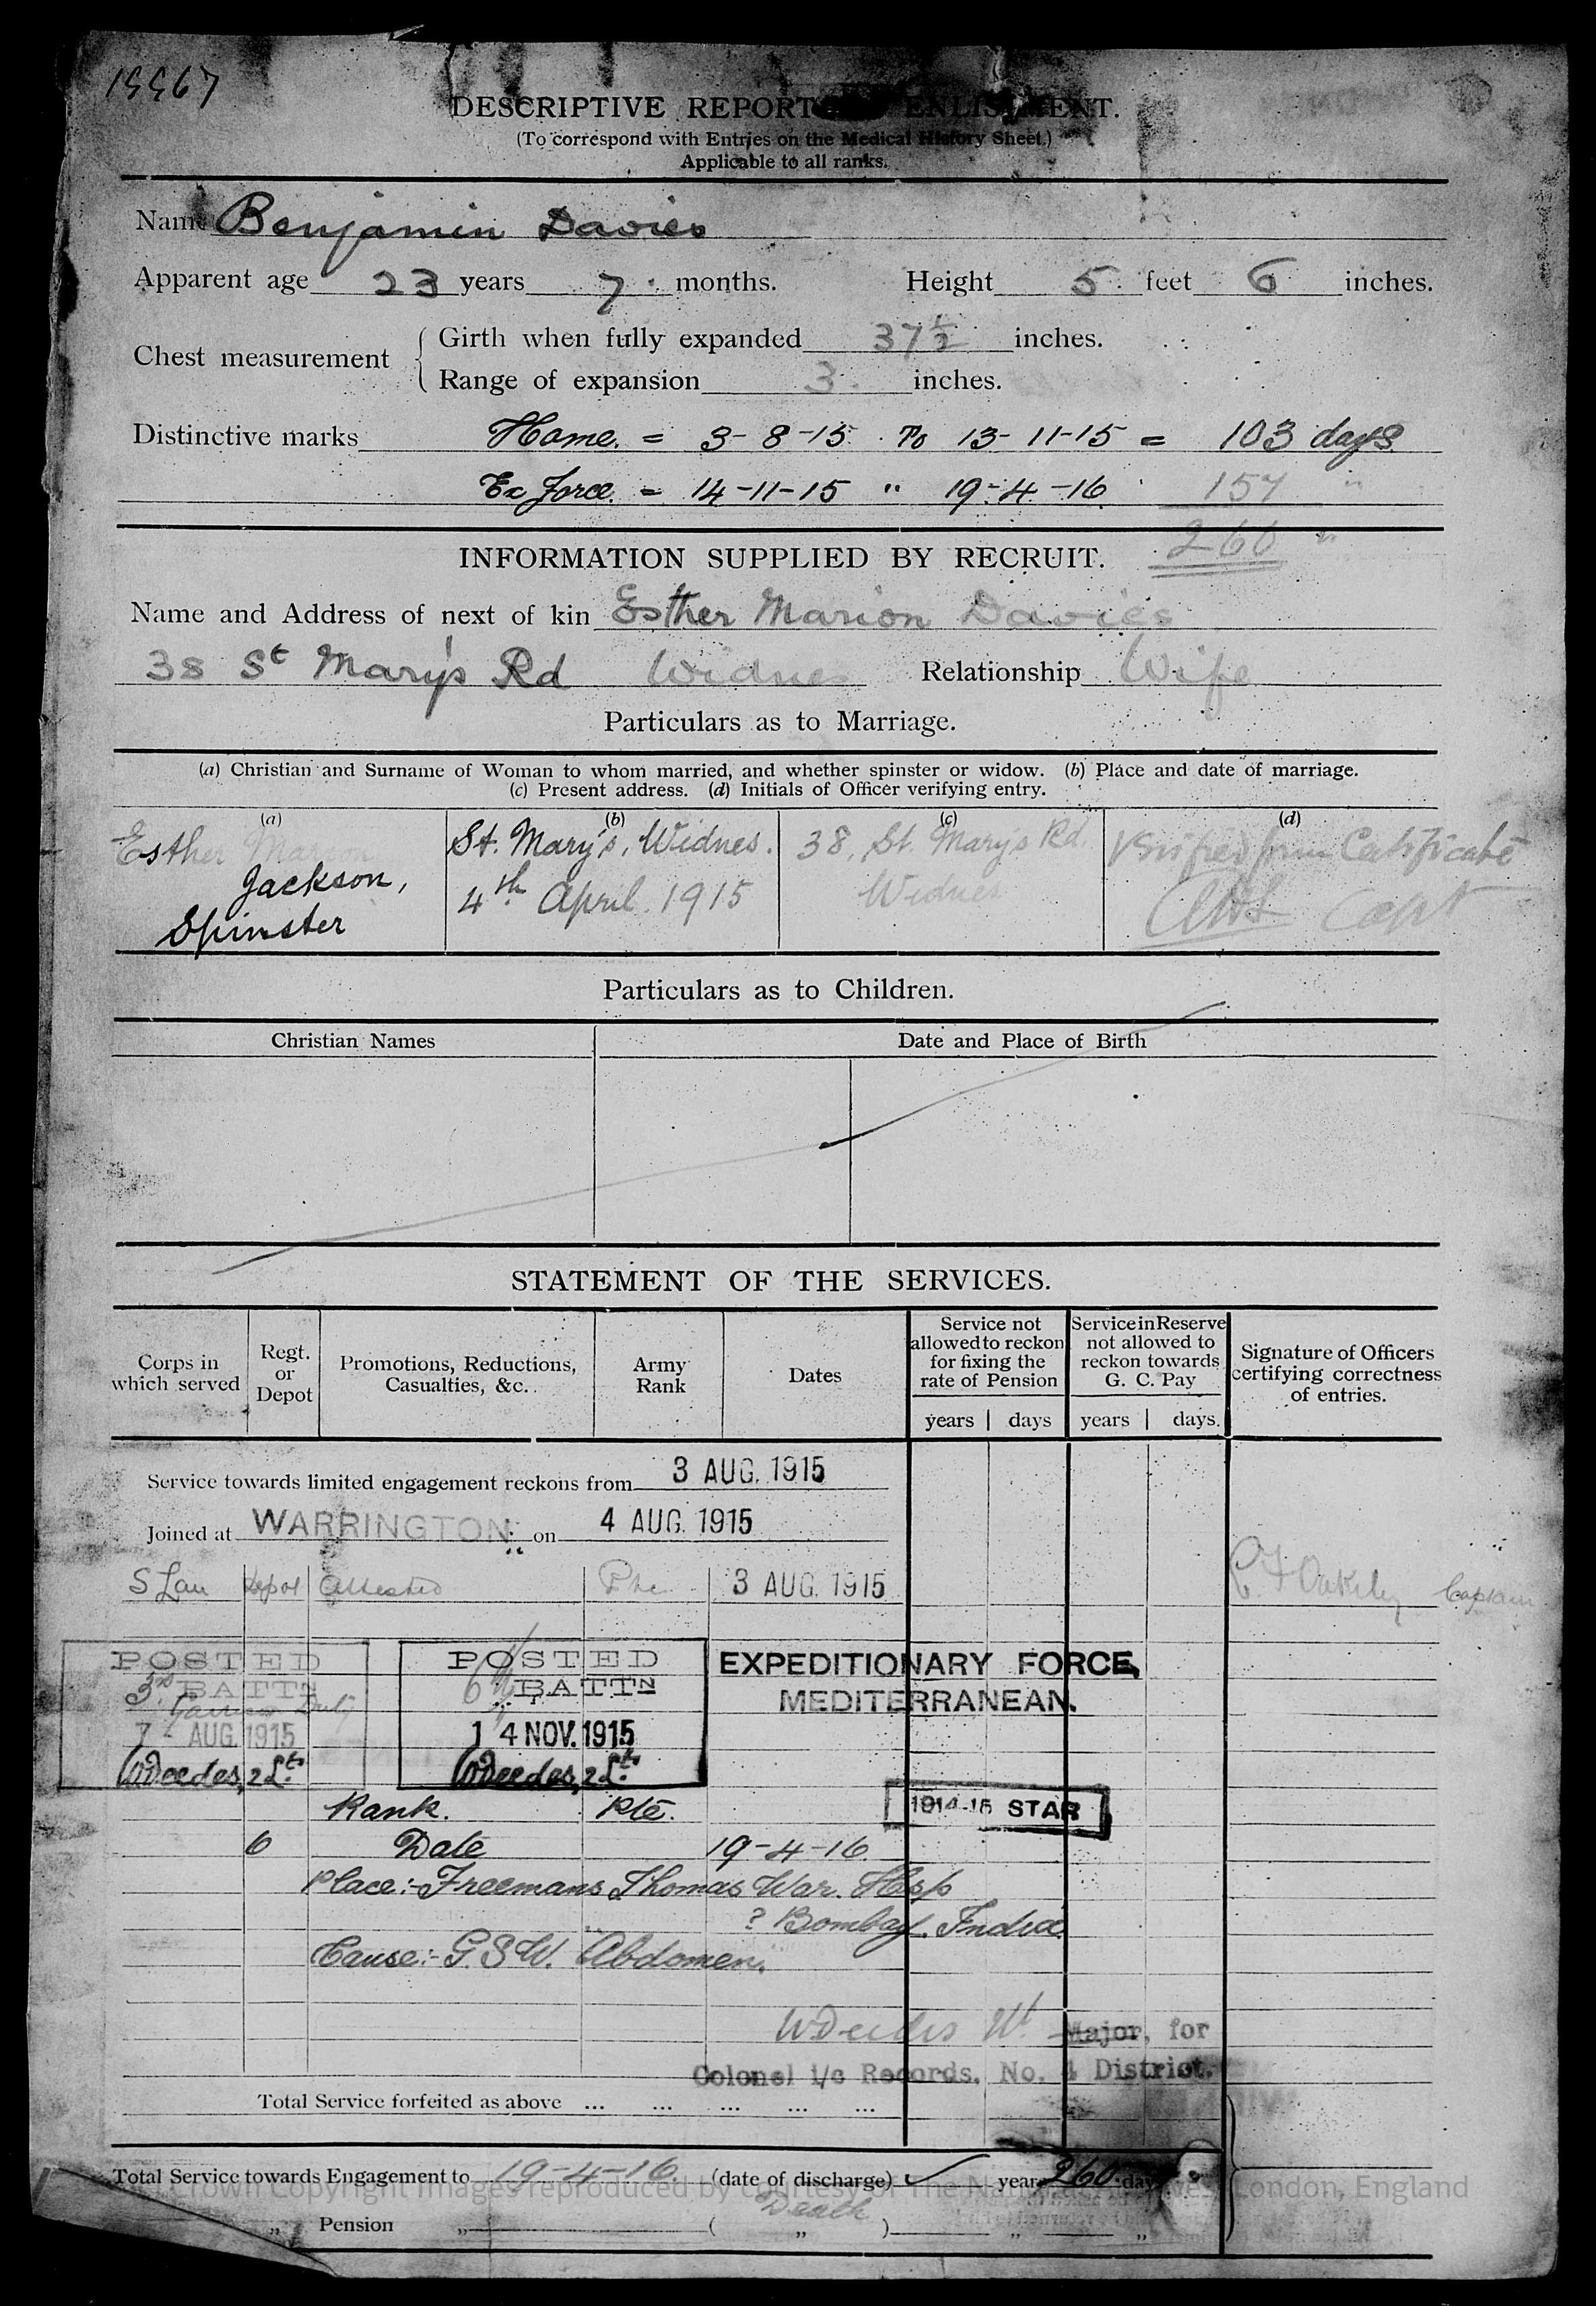 19967
DESCRIPTIVE REPORT ENLISTMENT.
(To correspond with Entries on the Medical History Sheet.)
Applicable to all ranks.
Name Benjamin Davies
Apparent age 23 years 7 months. Height 5 feet 6 inches.
Chest measurement { Girth when fully expanded 37½ inches.
Range of expansion 3 inches.
Distinctive marks Home. = 3-8-15 To 13-11-15 = 103 days
Ex Force. = 14-11-15 " 19-4-16 157 "
260 "
INFORMATION SUPPLIED BY RECRUIT.
Name and Address of next of kin Esther Marion Davies
38 St Mary's Rd Widnes Relationship Wife
Particulars as to Marriage.
(a) Christian and Surname of Woman to whom married, and whether spinster or widow. (b) Place and date of marriage.
(c) Present address. (d) Initials of Officer verifying entry.
(a) (b) (c) (d)
Esther Marion St. Mary's, Widnes. 38, St. Mary's Rd. Verified from Certificate
Jackson, 4th April. 1915 Widnes Capt
Spinster
Particulars as to Children.
Christian Names Date and Place of Birth
STATEMENT OF THE SERVICES.
Corps in which served Regt. or Depot Promotions, Reductions, Casualties, &c. Army Rank Dates Service not allowed to reckon for fixing the rate of Pension Service in Reserve not allowed to reckon towards G. C. Pay Signature of Officers certifying correctness of entries.
years days years days.
Service towards limited engagement reckons from 3 AUG. 1915
Joined at WARRINGTON on 4 AUG. 1915
S Lan Depot Attested Pte 3 AUG. 1915 Captain
POSTED POSTED EXPEDITIONARY FORCE,
3rd BATTN 6th BATTN MEDITERRANEAN.
Garrison Duty
7 - AUG. 1915 14 NOV. 1915
WDeedes, 2 Lt. WDeedes, 2 Lt.
Rank. Pte. 1914-15 STAR
6 Date 19-4-16.
Place:- Freemans Thomas War. Hosp
? Bombay. India
Cause:- G.S.W. Abdomen.
WDeedes Lt Major, for
Colonel i/c Records, No. 4 District.
Total Service forfeited as above ... ... ... ... ...
Total Service towards Engagement to 19-4-16. (date of discharge) years 260 days
Crown Copyright Images reproduced by courtesy of The National Archives, London, England
Death
„ Pension „ ( „ ) „ „